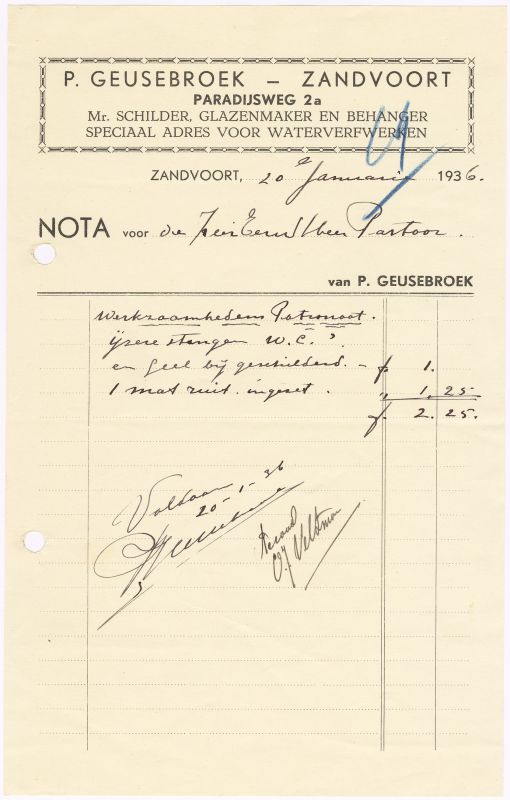 P. GEUSEBROEK — ZANDVOORT
PARADIJSWEG 2a
Mr. SCHILDER, GLAZENMAKER EN BEHANGER
SPECIAAL ADRES VOOR WATERVERFWERKEN
ZANDVOORT, 20 Januari 1936.
NOTA voor de Zeer Eerw. Heer Pastoor.
van P. GEUSEBROEK
Werkzaamheden Patronaat.
ijzere stangen W.C.
en geel bij geschilderd. - f 1.
1 mat ruit ingezet. " 1.25
f. 2.25.
Voldaan
20-1-36
Geusebroek
Akkoord
Veldman